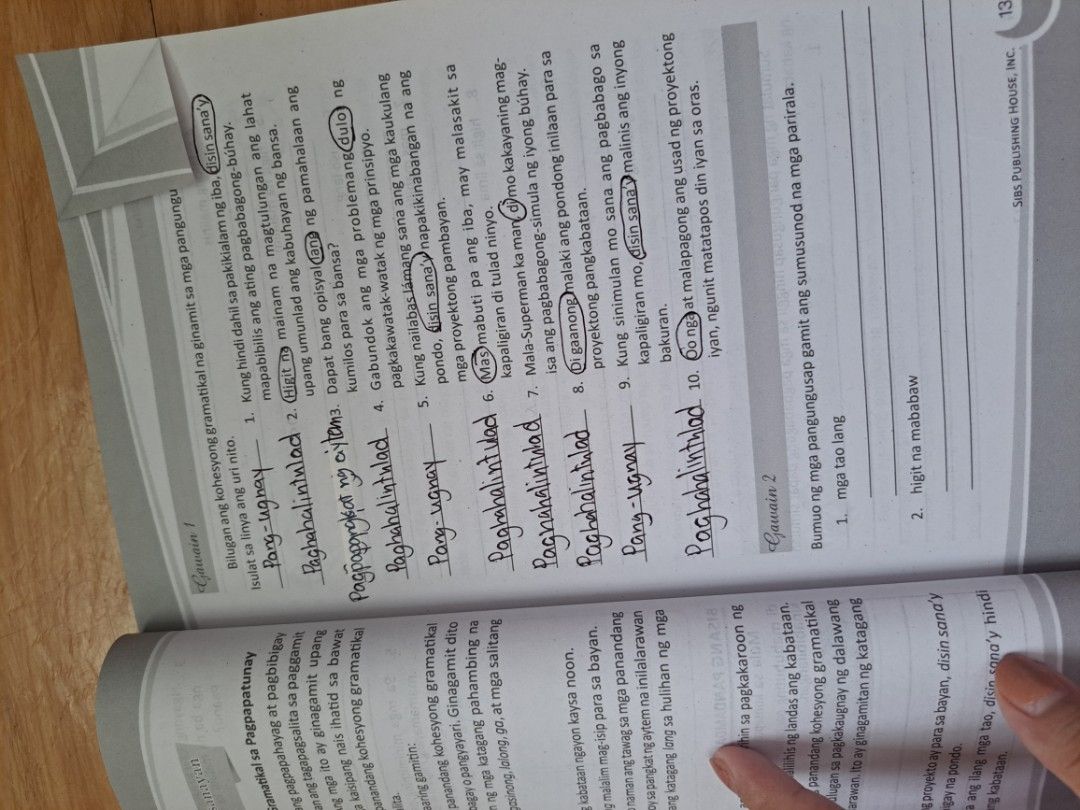 sanayan
Gramatikal sa Pagpapatunay
ng pagpapahayag at pagbibigay
ng tagapagsalita sa paggamit
ng mga ito ay ginagamit upang
kaisipang nais ihatid sa bawat
panandang kohesyong gramatikal
gamitin:
panandang kohesyong gramatikal
o pangyayari. Ginagamit dito
ng mga katagang pahambing na
gasinong, lalong, ga, at mga salitang
kabataan ngayon kaysa noon.
malalim mag-isip para sa bayan.
naman ang tawag sa mga panandang
sa pangkat ng aytem na inilalarawan
ang katagang lang sa hulihan ng mga
sa pagkakaroon ng
ng landas ang kabataan.
panandang kohesyong gramatikal
sa pagkakaugnay ng dalawang
ito ay ginagamitan ng katagang
proyekto ay para sa bayan, disin sana'y
na pondo.
ang ilang mga tao, disin sana'y hindi
kabataan.
Gawain 1
Bilugan ang kohesyong gramatikal na ginamit sa mga pangungu
Isulat sa linya ang uri nito.
Pang-ugnay 1. Kung hindi dahil sa pakikialam ng iba, disin sana'y
mapabibilis ang ating pagbabagong-búhay.
Paghahalintulad 2. Higit na mainam na magtulungan ang lahat
upang umunlad ang kabuhayan ng bansa.
Pagpapangkat ng aytem 3. Dapat bang opisyal lang ng pamahalaan ang
kumilos para sa bansa?
Paghahalintulad 4. Gabundok ang mga problemang dulot ng
pagkakawatak-watak ng mga prinsipyo.
Pang-ugnay 5. Kung nailabas lámang sana ang mga kaukulang
pondo, disin sana'y napakikinabangan na ang
mga proyektong pambayan.
Paghahalintulad 6. Mas mabuti pa ang iba, may malasakit sa
kapaligiran di tulad ninyo.
Paghahalintulad 7. Mala-Superman ka man di mo kakayaning mag-
isa ang pagbabagong-simula ng iyong búhay.
Paghahalintulad 8. Di gaanong malaki ang pondong inilaan para sa
proyektong pangkabataan.
Pang-ugnay 9. Kung sinimulan mo sana ang pagbabago sa
kapaligiran mo, disin sana'y malinis ang inyong
bakuran.
Paghahalintulad 10. Oo nga at malapagong ang usad ng proyektong
iyan, ngunit matatapos din iyan sa oras.
Gawain 2
Bumuo ng mga pangungusap gamit ang sumusunod na mga parirala.
1. mga tao lang
2. higit na mababaw
SIBS PUBLISHING HOUSE, INC.
13